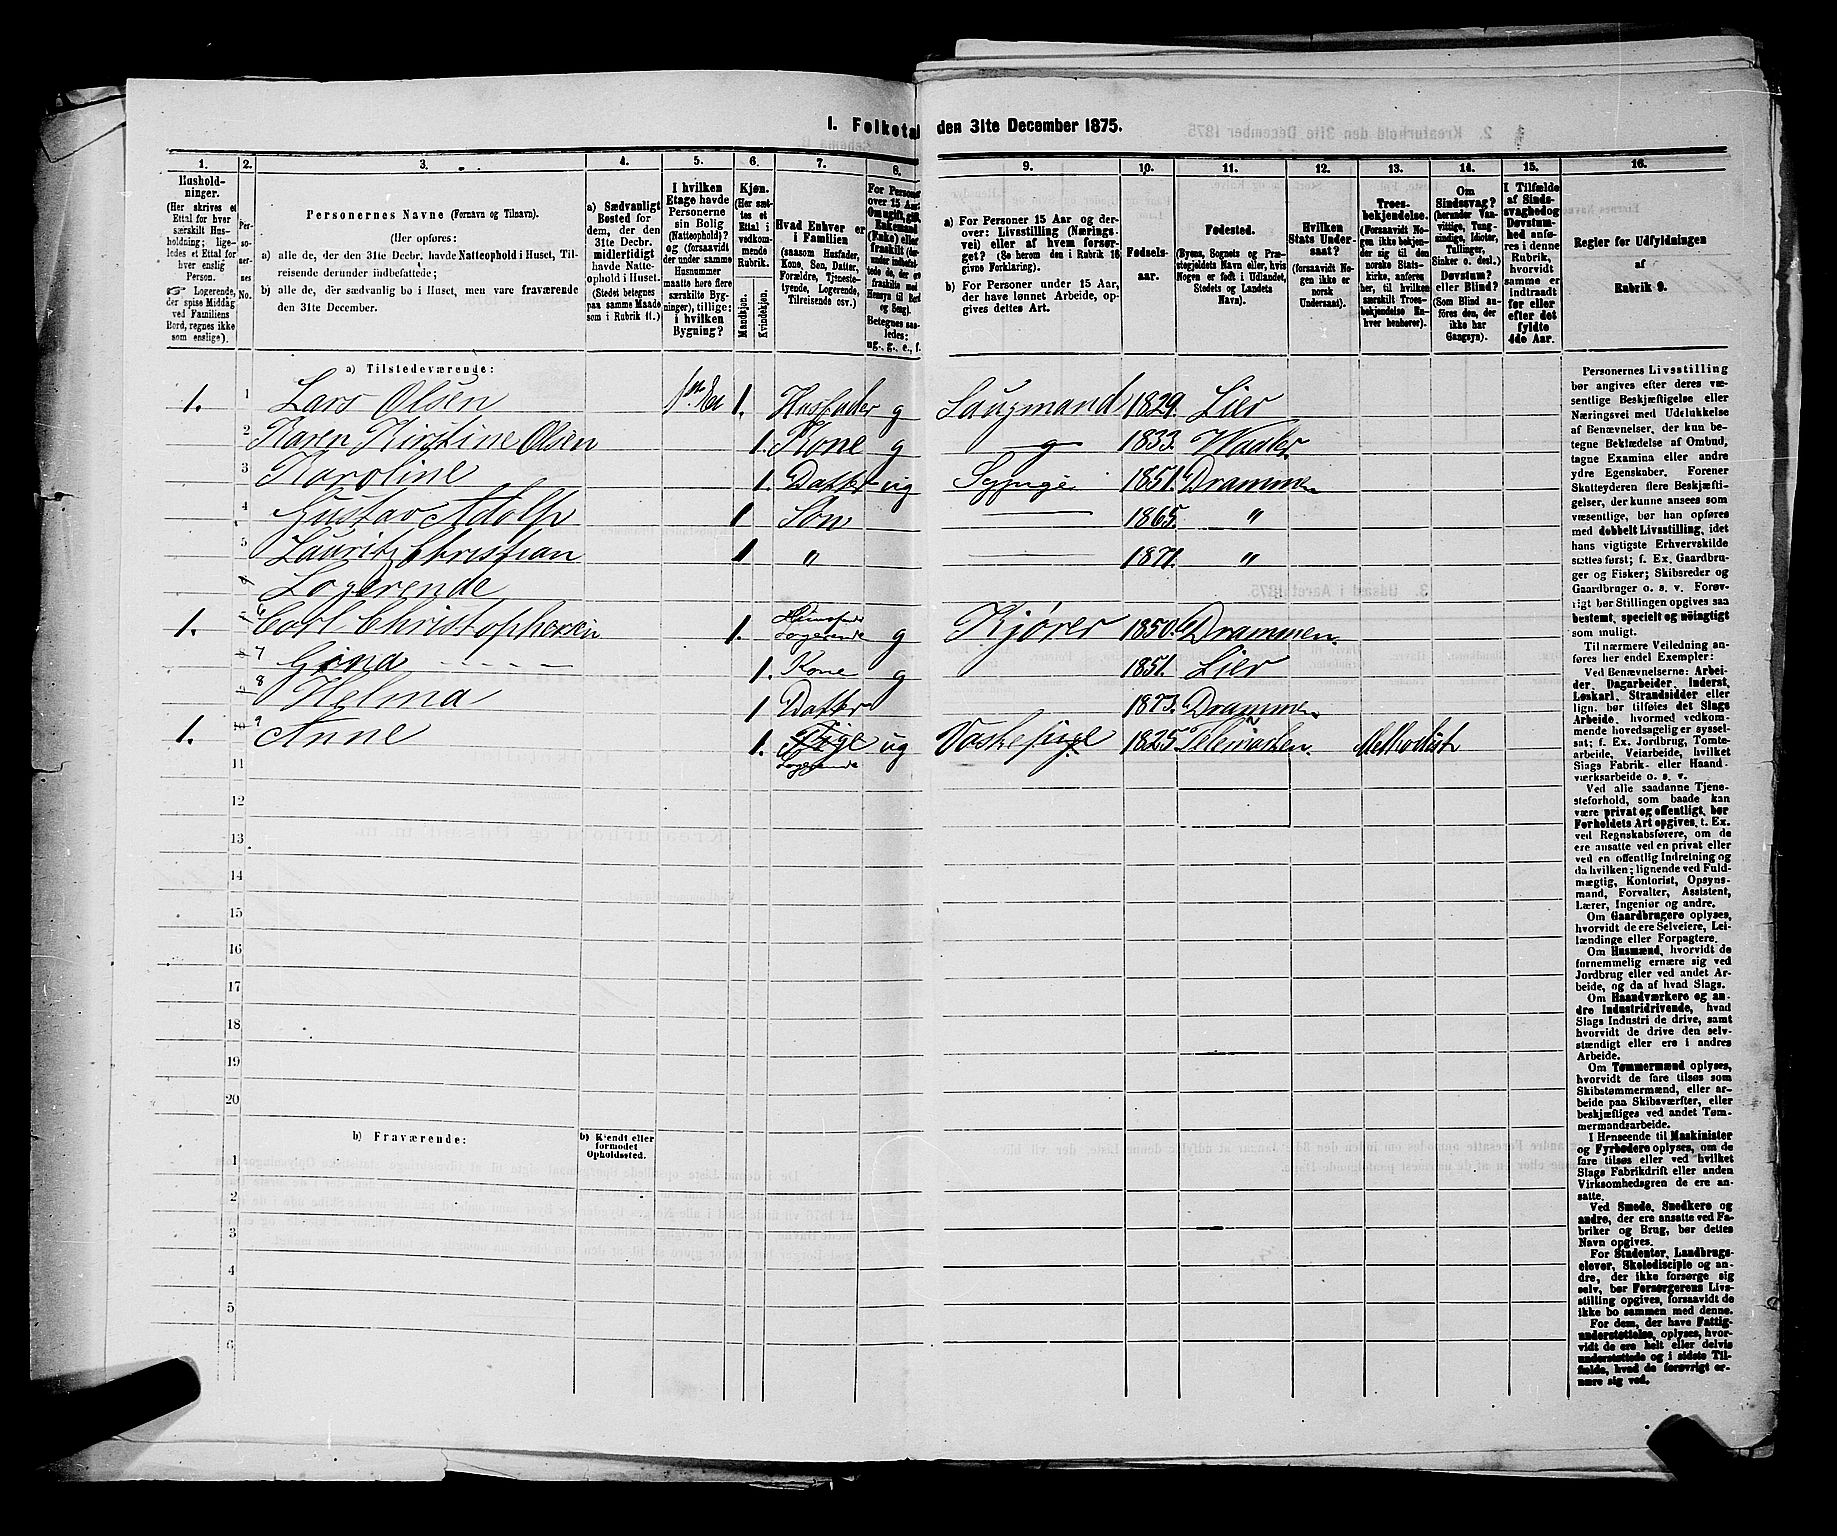 I. Folketal den 31te December 1875.
1. 2. 3. 4. 5. 6. 7. 8. 9. 10. 11. 12. 13. 14. 15. 16.
Husholdninger.
(Her skrives et Ettal for hver særskilt Husholdning; ligeledes et Ettal for hver enslig Person.
Logerende, der spise Middag ved Familiens Bord, regnes ikke som enslige).
Personernes No.
Personernes Navne (Fornavn og Tilnavn).
(Her opføres:
a) alle de, der den 31te Decbr. havde Natteophold i Huset, Tilreisende derunder indbefattede;
b) alle de, der sædvanlig bo i Huset, men vare fraværende den 31te December.
a) Sædvanligt Bosted for dem, der den 31te Decbr. midlertidigt havde Natteophold i Huset. (Stedet betegnes paa samme Maade som i Rubrik 11.)
I hvilken Etage havde Personerne sin Bolig (Natteophold)? og (forsaavidt der under samme Husnummer maatte høre flere særskilte Bygninger), tillige: i hvilken Bygning?
Kjøn.
(Her sættes et Ettal i vedkommende Rubrik.
Mandkjøn. Kvindekjøn.
Hvad Enhver er i Familien
(saasom Husfader, Kone, Søn, Datter, Forældre, Tjenestetyende, Logerende, Tilreisende osv.)
Betegnes saaledes: ug., g., e., f.
a) For Personer 15 Aar og derover: Livsstilling (Næringsvei) eller af hvem forsørget? (Se herom den i Rubrik 16 givne Forklaring).
b) For Personer under 15 Aar, der have lønnet Arbeide, opgives dettes Art.
Fødselsaar.
Fødested.
(Byens, Sognets og Præstegjeldets Navn eller, hvis Nogen er født i Udlandet, Stedets og Landets Navn).
Hvilken Stats Undersaat?
(forsaavidt Nogen ikke er norsk Undersaat).
Troesbekjendelse.
(Forsaavidt Nogen ikke bekjender sig til den norske Statskirke, anføres her, til hvilken særskilt Troesbekjendelse Enhver henhører).
Om Sindssvag? (herunder Vanvittige, Tungsindige, Idioter, Tullinger, Sinker o. desl.) Døvstum? eller Blind? (Som Blind anføres den, der ikke har Gangsyn).
I Tilfælde af Sindssvaghed og Døvstumhed anføres i denne Rubrik, hvorvidt samme er indtraadt før eller efter det fyldte 4de Aar.
Regler for Udfyldningen af Rubrik 9.
a) Tilstedeværende:
1. 1 Lars Olsen 1. Husfader g Saugmand 1829. Lier
2 Karen Kirstine Olsen 1. Kone g 1833. Waaler
3 Karoline 1. Datter ug Sypige 1851. Drammen
4 Gustav Adolf 1 Søn 1865. "
5 Lauritz Christian 1 " 1871. "
Logerende
1. 6 Carl Christophersen 1. Huusfader Logerende g Kjører 1850. Drammen.
7 Gina - - - - - 1. Kone g 1851. Lier
8 Helma 1 Datter 1873. Drammen
1. 9 Anne 1. Pige Logerende ug Vaskepige 1825. Telemarken. Methodist
11
12
13
14
15
16
17
18
19
20
b) Fraværende:
b) Kjendt eller formodet Opholdssted.
1
2
3
4
5
6
Personernes Livsstilling bør angives efter deres væsentlige Beskjæftigelse eller Næringsvei med Udelukkelse af Benævnelser, der kun betegne Beklædelse af Ombud, tagne Examina eller andre ydre Egenskaber. Forener Skatteyderen flere Beskjæftigelser, der kunne ansees som væsentlige, bør han opføres med dobbelt Livsstilling, idet hans vigtigste Erhvervskilde sættes først; f. Ex. Gaardbruger og Fisker; Skibsreder og Gaardbruger o. s. v. Forøvrigt bør Stillingen opgives saa bestemt, specielt og nöiagtigt som muligt.
Til nærmere Veiledning anføres her endel Exempler:
Ved Benævnelserne: Arbeider, Dagarbeider, Inderst, Løskarl, Strandsidder eller lign. bør tilføies det Slags Arbeide, hvormed vedkommende hovedsagelig er sysselsat; f. Ex. Jordbrug, Tomtearbeide, Veiarbeide, hvilket Slags Fabrik- eller Haandværksarbeide o. s. v.
Ved alle saadanne Tjenesteforhold, som baade kan være privat og offentligt, bør Forholdets Art opgives, t. Ex. ved Regnskabsførere, om de ere ansatte ved en privat eller ved en offentlig Indretning og da hvilken; lignende ved Fuldmægtig, Kontorist, Opsynsmand, Forvalter, Assistent, Lærer, Ingeniør og andre.
Om Gaardbrugere oplyses, hvorvidt de ere Selveiere, Leilændinge eller Forpagtere.
Om Husmænd, hvorvidt de fornemmelig ernære sig ved Jordbrug eller ved andet Arbeide, og da af hvad Slags.
Om Haandværkere og andre Industridrivende, hvad Slags Industri de drive, samt hvorvidt de drive den selvstændigt eller ere i andres Arbeide.
Om Tømmermænd oplyses, hvorvidt de fare tilsøs som Skibstømmermænd, eller arbeide paa Skibsværfter, eller beskjæftiges ved andet Tømmermandsarbeide.
I Henseende til Maskinister og Fyrbødere oplyses, om de fare tilsøs eller ved hvilket Slags Fabrikdrift eller anden Virksomhedsgren de ere ansatte.
Ved Smede, Snedkere og andre, der ere ansatte ved Fabriker og Brug, bør dettes Navn opgives.
For Studenter, Landbrugselever, Skoledisciple og andre, der ikke forsørge sig selv, bør Forsørgerens Livsstilling opgives, forsaavidt de ikke bo sammen med denne.
For dem, der have Fattigunderstøttelse, oplyses, hvorvidt de ere helt eller delvis understøttede og i sidste Tilfælde, hvad de forøvrigt ernære sig ved.